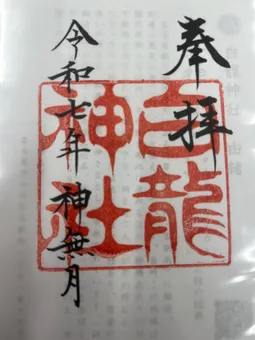 奉拝
白龍神社
令和七年 神無月